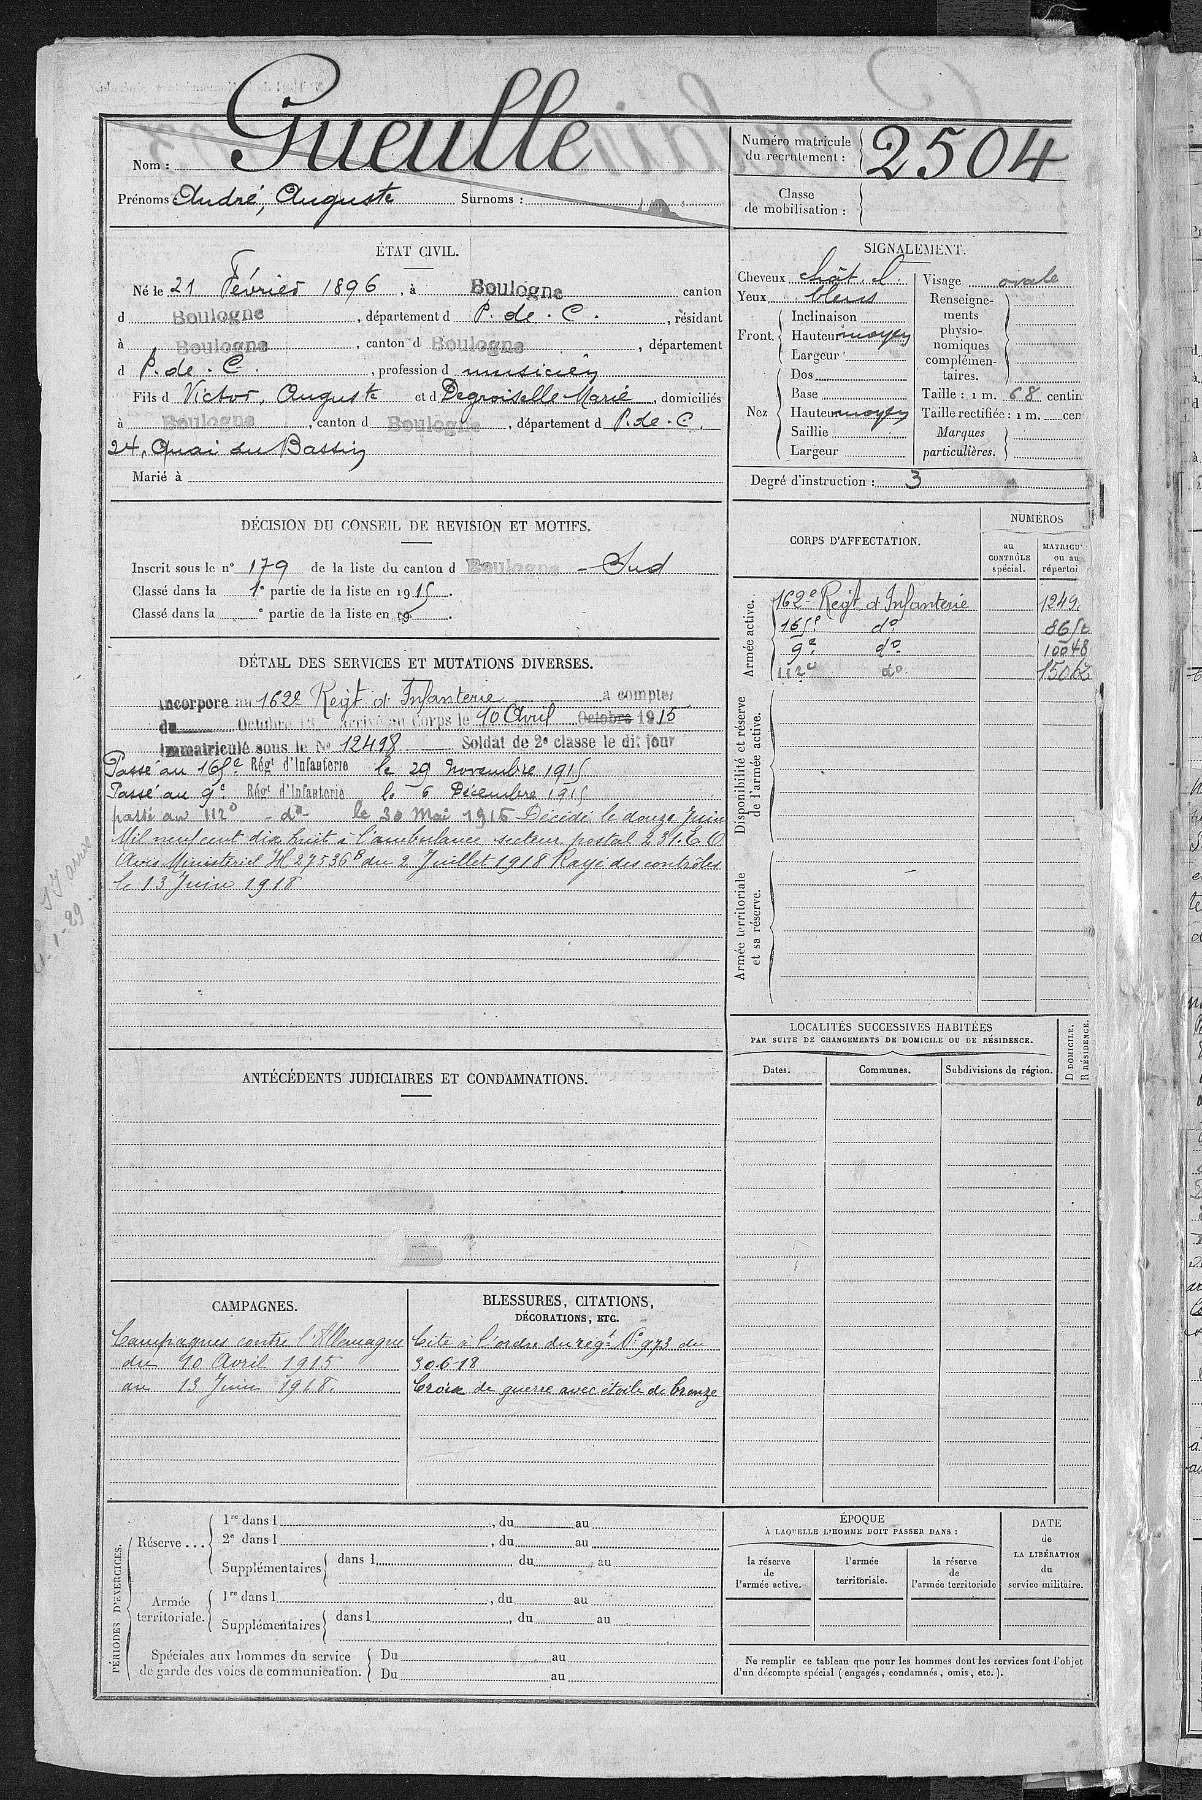 Nom : Gueulle
Prénoms : André, Auguste Surnoms :
Numéro matricule du recrutement : 2504
Classe de mobilisation :
ÉTAT CIVIL.
Né le 21 Février 1896, à Boulogne canton
d Boulogne, département d P. de. C., résidant
à Boulogne, canton d Boulogne, département
d P. de. C., profession d musicien
Fils d Victor, Auguste et d Degroiselle Marie, domiciliés
à Boulogne, canton d Boulogne, département d P. de. C.
24, Quai du Bassin
Marié à
SIGNALEMENT.
Cheveux chât. cl.
Yeux bleus
Front
Inclinaison
Hauteur moyen
Largeur
Nez
Dos
Base
Hauteur moyen
Saillie
Largeur
Visage ovale
Renseigne-
ments
physio-
nomiques
complémen-
taires.
Taille : 1 m. 68 centim
Taille rectifiée : 1 m. cen
Marques
particulières.
Degré d'instruction : 3
DÉCISION DU CONSEIL DE REVISION ET MOTIFS.
Inscrit sous le n° 179 de la liste du canton d Boulogne - Sud
Classé dans la 1e partie de la liste en 1915.
Classé dans la e partie de la liste en 19
CORPS D'AFFECTATION.
NUMÉROS
au CONTRÔLE spécial.
MATRICU ou au répertoi
Armée active.
162e Reigt d Infanterie 1249
165e do
9e do 10048
112e do
Disponibilité et réserve de l'armée active.
Armée territoriale et sa réserve.
DÉTAIL DES SERVICES ET MUTATIONS DIVERSES.
Incorporé au 162e Reigt d Infanterie à compter
du Octobre arrivé au Corps le 10 Avril Octobre 1915
Immatriculé sous le No 12498 Soldat de 2e classe le dit jour
Passé au 165e Régt d'Infanterie le 29 novembre 1915
Passé au 9e Régt d'Infanterie le 6 Décembre 1915
passé au 112e - do - le 30 Mai 1916 Décédé le douze Juin
Mil neuf cent dix huit à l'ambulance secteur postal 231.
Avis Ministériel H 27536 du 2 Juillet 1918 Rayé des contrôles
le 13 Juin 1918
LOCALITÉS SUCCESSIVES HABITÉES
PAR SUITE DE CHANGEMENTS DE DOMICILE OU DE RÉSIDENCE.
Dates. Communes. Subdivisions de région. D DOMICILE. R RÉSIDENCE.
ANTÉCÉDENTS JUDICIAIRES ET CONDAMNATIONS.
CAMPAGNES.
Campagnes contre l'Allemagne
du 10 Avril 1915
au 13 Juin 1918.
BLESSURES, CITATIONS,
DÉCORATIONS, ETC.
Cité à l'ordre du régt No 973 du
30.6.18
Croix de guerre avec étoile de bronze
PÉRIODES D'EXERCICES.
Réserve...
1re dans l , du au
2e dans l , du au
Supplémentaires dans l du au
Armée territoriale.
1re dans l , du au
Supplémentaires dans l , du au
Spéciales aux hommes du service
de garde des voies de communication.
Du au
Du au
ÉPOQUE
À LAQUELLE L'HOMME DOIT PASSER DANS :
la réserve de l'armée active.
l'armée territoriale.
la réserve de l'armée territoriale
DATE de LA LIBÉRATION du service militaire.
Ne remplir ce tableau que pour les hommes dont les services font l'objet
d'un décompte spécial (engagés, condamnés, omis, etc.).